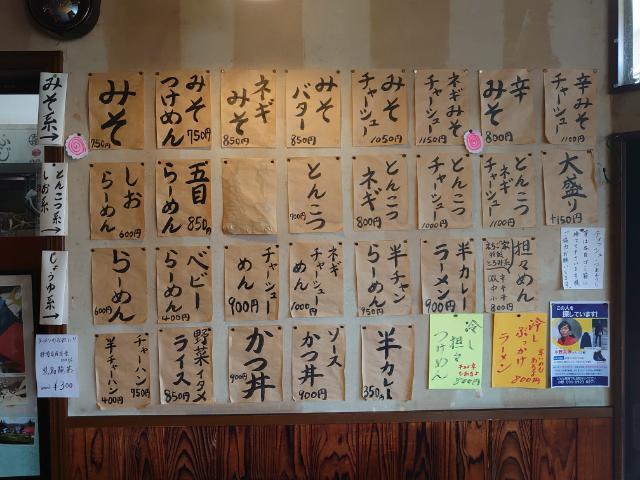 みそ系→
みそ
750円
みそ
つけめん
750円
ネギ
みそ
850円
みそ
バター
850円
みそ
チャーシュー
1050円
ネギみそ
チャーシュー
1150円
辛
みそ
800円
辛みそ
チャーシュー
1100円
とんこつ系→
しお系
しお
らーめん
600円
五目
らーめん
850円
とんこつ
700円
とんこつ
ネギ
800円
とんこつ
チャーシュー
1000円
とんこつ
ネギ
チャーシュー
1100円
大盛り
+150円
しょうゆ系→
らーめん
600円
ベビー
らーめん
400円
チャーシュー
めん
900円
ネギ
チャーシュー
めん
1000円
半チャン
らーめん
950円
半カレー
ラーメン
900円
担々めん
800円
チャーハン
750円
半チャハン
400円
野菜イタメ
ライス
850円
かつ丼
900円
ソース
かつ丼
900円
半カレー
350円
冷し
担々
つけめん
冷し
ぶっかけ
ラーメン
800円
¥300
この人を
探しています!